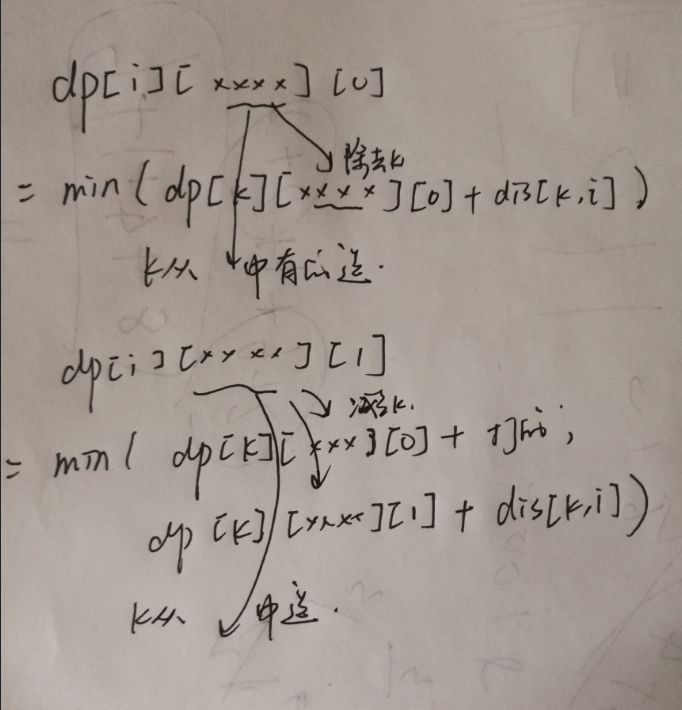 dp[i][xxxx][0]
除去k
= min(dp[k][xxxx][0]+dis[k,i])
k从 中有的选.
dp[i][xxxx][1]
减去k.
= min( dp[k][xxx][0] + 打的,
dp[k][xxxx][1] + dis[k,i])
k从 中选.